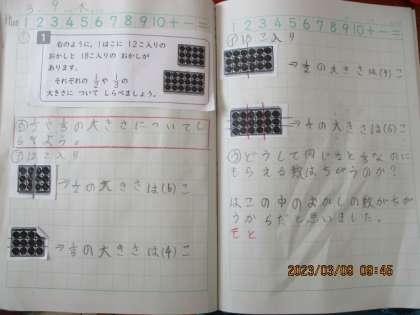 1 2 3 4 5 6 7 8 9 10 + - =
1
右のように，1はこに 12こ入りの
おかしと 18こ入りの おかしが
あります。
それぞれの 1/2 や 1/3 の
大きさに ついて しらべましょう。
1/2や1/3の大きさについてし
らべよう。
こ入り
→1/2の大きさは(6)こ
→1/3の大きさは(4)こ
1 2 3 4 5 6 7 8 9 10 + - =
18こ入り
→1/2の大きさは(9)こ
→1/3の大きさは(6)こ
どうして同じ大きさなのに
もらえる数はちがうのか?
はこの中のおかしの数がちが
うからだと思いました。
もと
2023/03/09 09:45